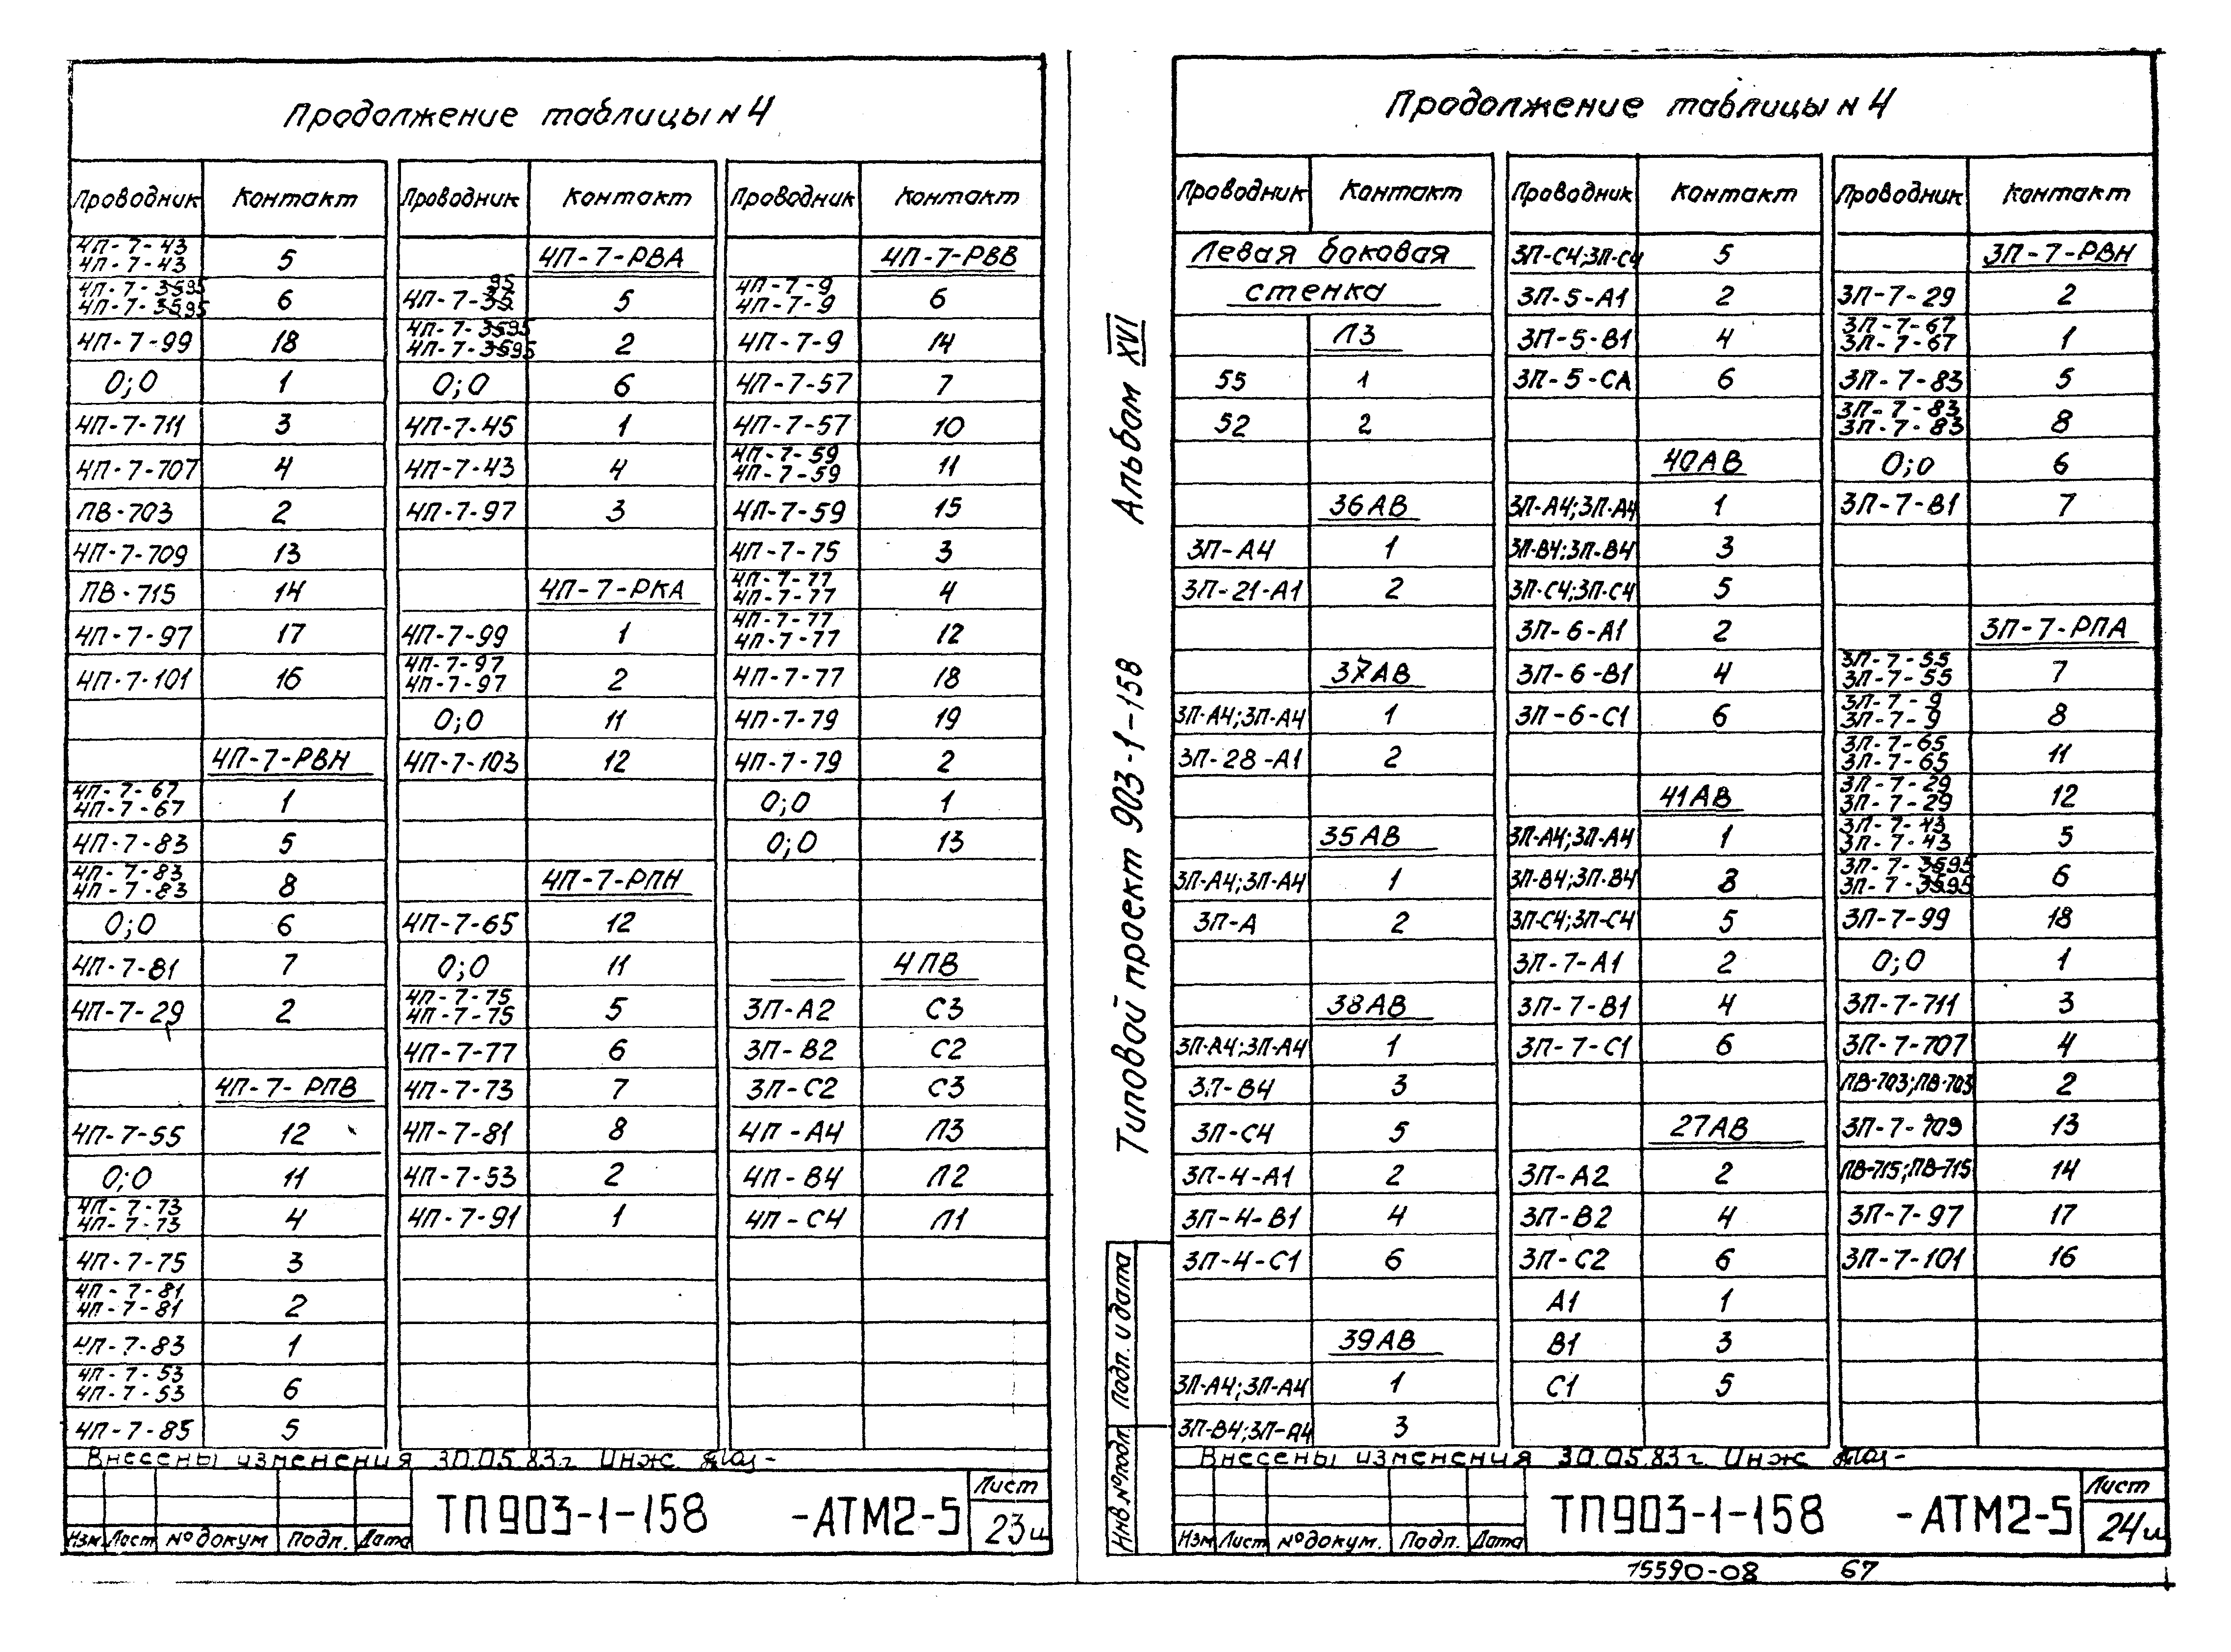 Продолжение таблицы N 4
Проводник Контакт Проводник Контакт Проводник Контакт
4П-7-43
4П-7-43 5 4П-7-РВА 4П-7-РВВ
4П-7-3595
4П-7-3595 6 4П-7-35 95 5 4П-7-9
4П-7-9 6
4П-7-99 18 4П-7-3595
4П-7-3595 2 4П-7-9 14
0;0 1 0;0 6 4П-7-57 7
4П-7-711 3 4П-7-45 1 4П-7-57 10
4П-7-707 4 4П-7-43 4 4П-7-59
4П-7-59 11
ПВ-703 2 4П-7-97 3 4П-7-59 15
4П-7-709 13 4П-7-75 3
ПВ-715 14 4П-7-РКА 4П-7-77
4П-7-77 4
4П-7-97 17 4П-7-99 1 4П-7-77
4П-7-77 12
4П-7-101 16 4П-7-97
4П-7-97 2 4П-7-77 18
0;0 11 4П-7-79 19
4П-7-РВН 4П-7-103 12 4П-7-79 2
4П-7-67
4П-7-67 1 0;0 1
4П-7-83 5 0;0 13
4П-7-83
4П-7-83 8 4П-7-РПН
0;0 6 4П-7-65 12
4П-7-81 7 0;0 11 4ПВ
4П-7-29 2 4П-7-75
4П-7-75 5 3П-А2 С3
4П-7-77 6 3П-В2 С2
4П-7-РПВ 4П-7-73 7 3П-С2 С3
4П-7-55 12 4П-7-81 8 4П-А4 Л3
0;0 11 4П-7-53 2 4П-В4 Л2
4П-7-73
4П-7-73 4 4П-7-91 1 4П-С4 Л1
4П-7-75 3
4П-7-81
4П-7-81 2
4П-7-83 1
4П-7-53
4П-7-53 6
4П-7-85 5
Внесены изменения 30.05.83г. Инж.
Изм. Лист № докум Подп. Дата
ТП903-1-158 -АТМ2-5
Лист
23и
Альбом XVI
Типовой проект 903-1-158
Подп. и дата
Инв.№подл.
Продолжение таблицы N 4
Проводник Контакт Проводник Контакт Проводник Контакт
Левая боковая 3П-С4;3П-С4 5 3П-7-РВН
стенка 3П-5-А1 2 3П-7-29 2
Л3 3П-5-В1 4 3П-7-67
3П-7-67 1
55 1 3П-5-СА 6 3П-7-83 5
52 2 3П-7-83
3П-7-83 8
40АВ 0;0 6
36АВ 3П-А4;3П-А4 1 3П-7-В1 7
3П-А4 1 3П-В4;3П-В4 3
3П-21-А1 2 3П-С4;3П-С4 5
3П-6-А1 2 3П-7-РПА
37АВ 3П-6-В1 4 3П-7-55
3П-7-55 7
3П-А4;3П-А4 1 3П-6-С1 6 3П-7-9
3П-7-9 8
3П-28-А1 2 3П-7-65
3П-7-65 11
41АВ 3П-7-29
3П-7-29 12
35АВ 3П-А4;3П-А4 1 3П-7-43
3П-7-43 5
3П-А4;3П-А4 1 3П-В4;3П-В4 3 3П-7-3595
3П-7-3595 6
3П-А 2 3П-С4;3П-С4 5 3П-7-99 18
3П-7-А1 2 0;0 1
38АВ 3П-7-В1 4 3П-7-711 3
3П-А4;3П-А4 1 3П-7-С1 6 3П-7-707 4
3П-В4 3 ПВ-703;ПВ-703 2
3П-С4 5 27АВ 3П-7-709 13
3П-4-А1 2 3П-А2 2 ПВ-715;ПВ-715 14
3П-4-В1 4 3П-В2 4 3П-7-97 17
3П-4-С1 6 3П-С2 6 3П-7-101 16
А1 1
39АВ В1 3
3П-А4;3П-А4 1 С1 5
3П-В4;3П-А4 3
Внесены изменения 30.05.83г. Инж
Изм Лист № докум. Подп. Дата
ТП903-1-158 -АТМ2-5
Лист
24и
15590-08 67